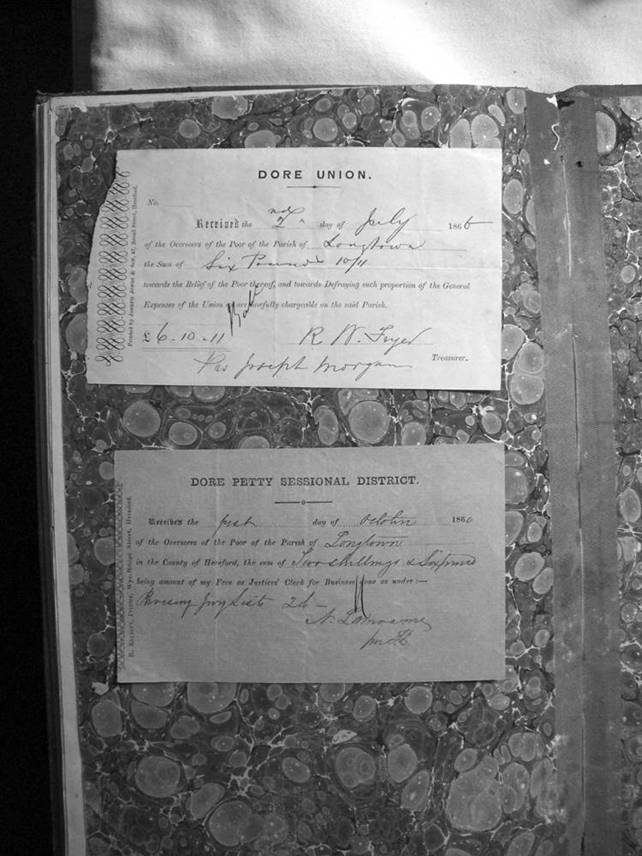 DORE UNION.
No.
Received the 2nd day of July 1866
of the Overseers of the Poor of the Parish of Longtown
the Sum of Six Pounds 10/11
towards the Relief of the Poor thereof, and towards Defraying such proportion of the General
Expenses of the Union as are lawfully chargeable on the said Parish.
£6-10-11 R. W.
Treasurer.
Joseph Morgan
Printed by Joseph Jones & Son, 47, Broad Street, Hereford.
DORE PETTY SESSIONAL DISTRICT.
Received the first day of October 1866
of the Overseers of the Poor of the Parish of Longtown
in the County of Hereford, the sum of Two shillings & Sixpence
being amount of my Fees as Justices' Clerk for Business done as under:—
Revising Jury Lists 2 6
Printer, Wye Bridge Street, Hereford.